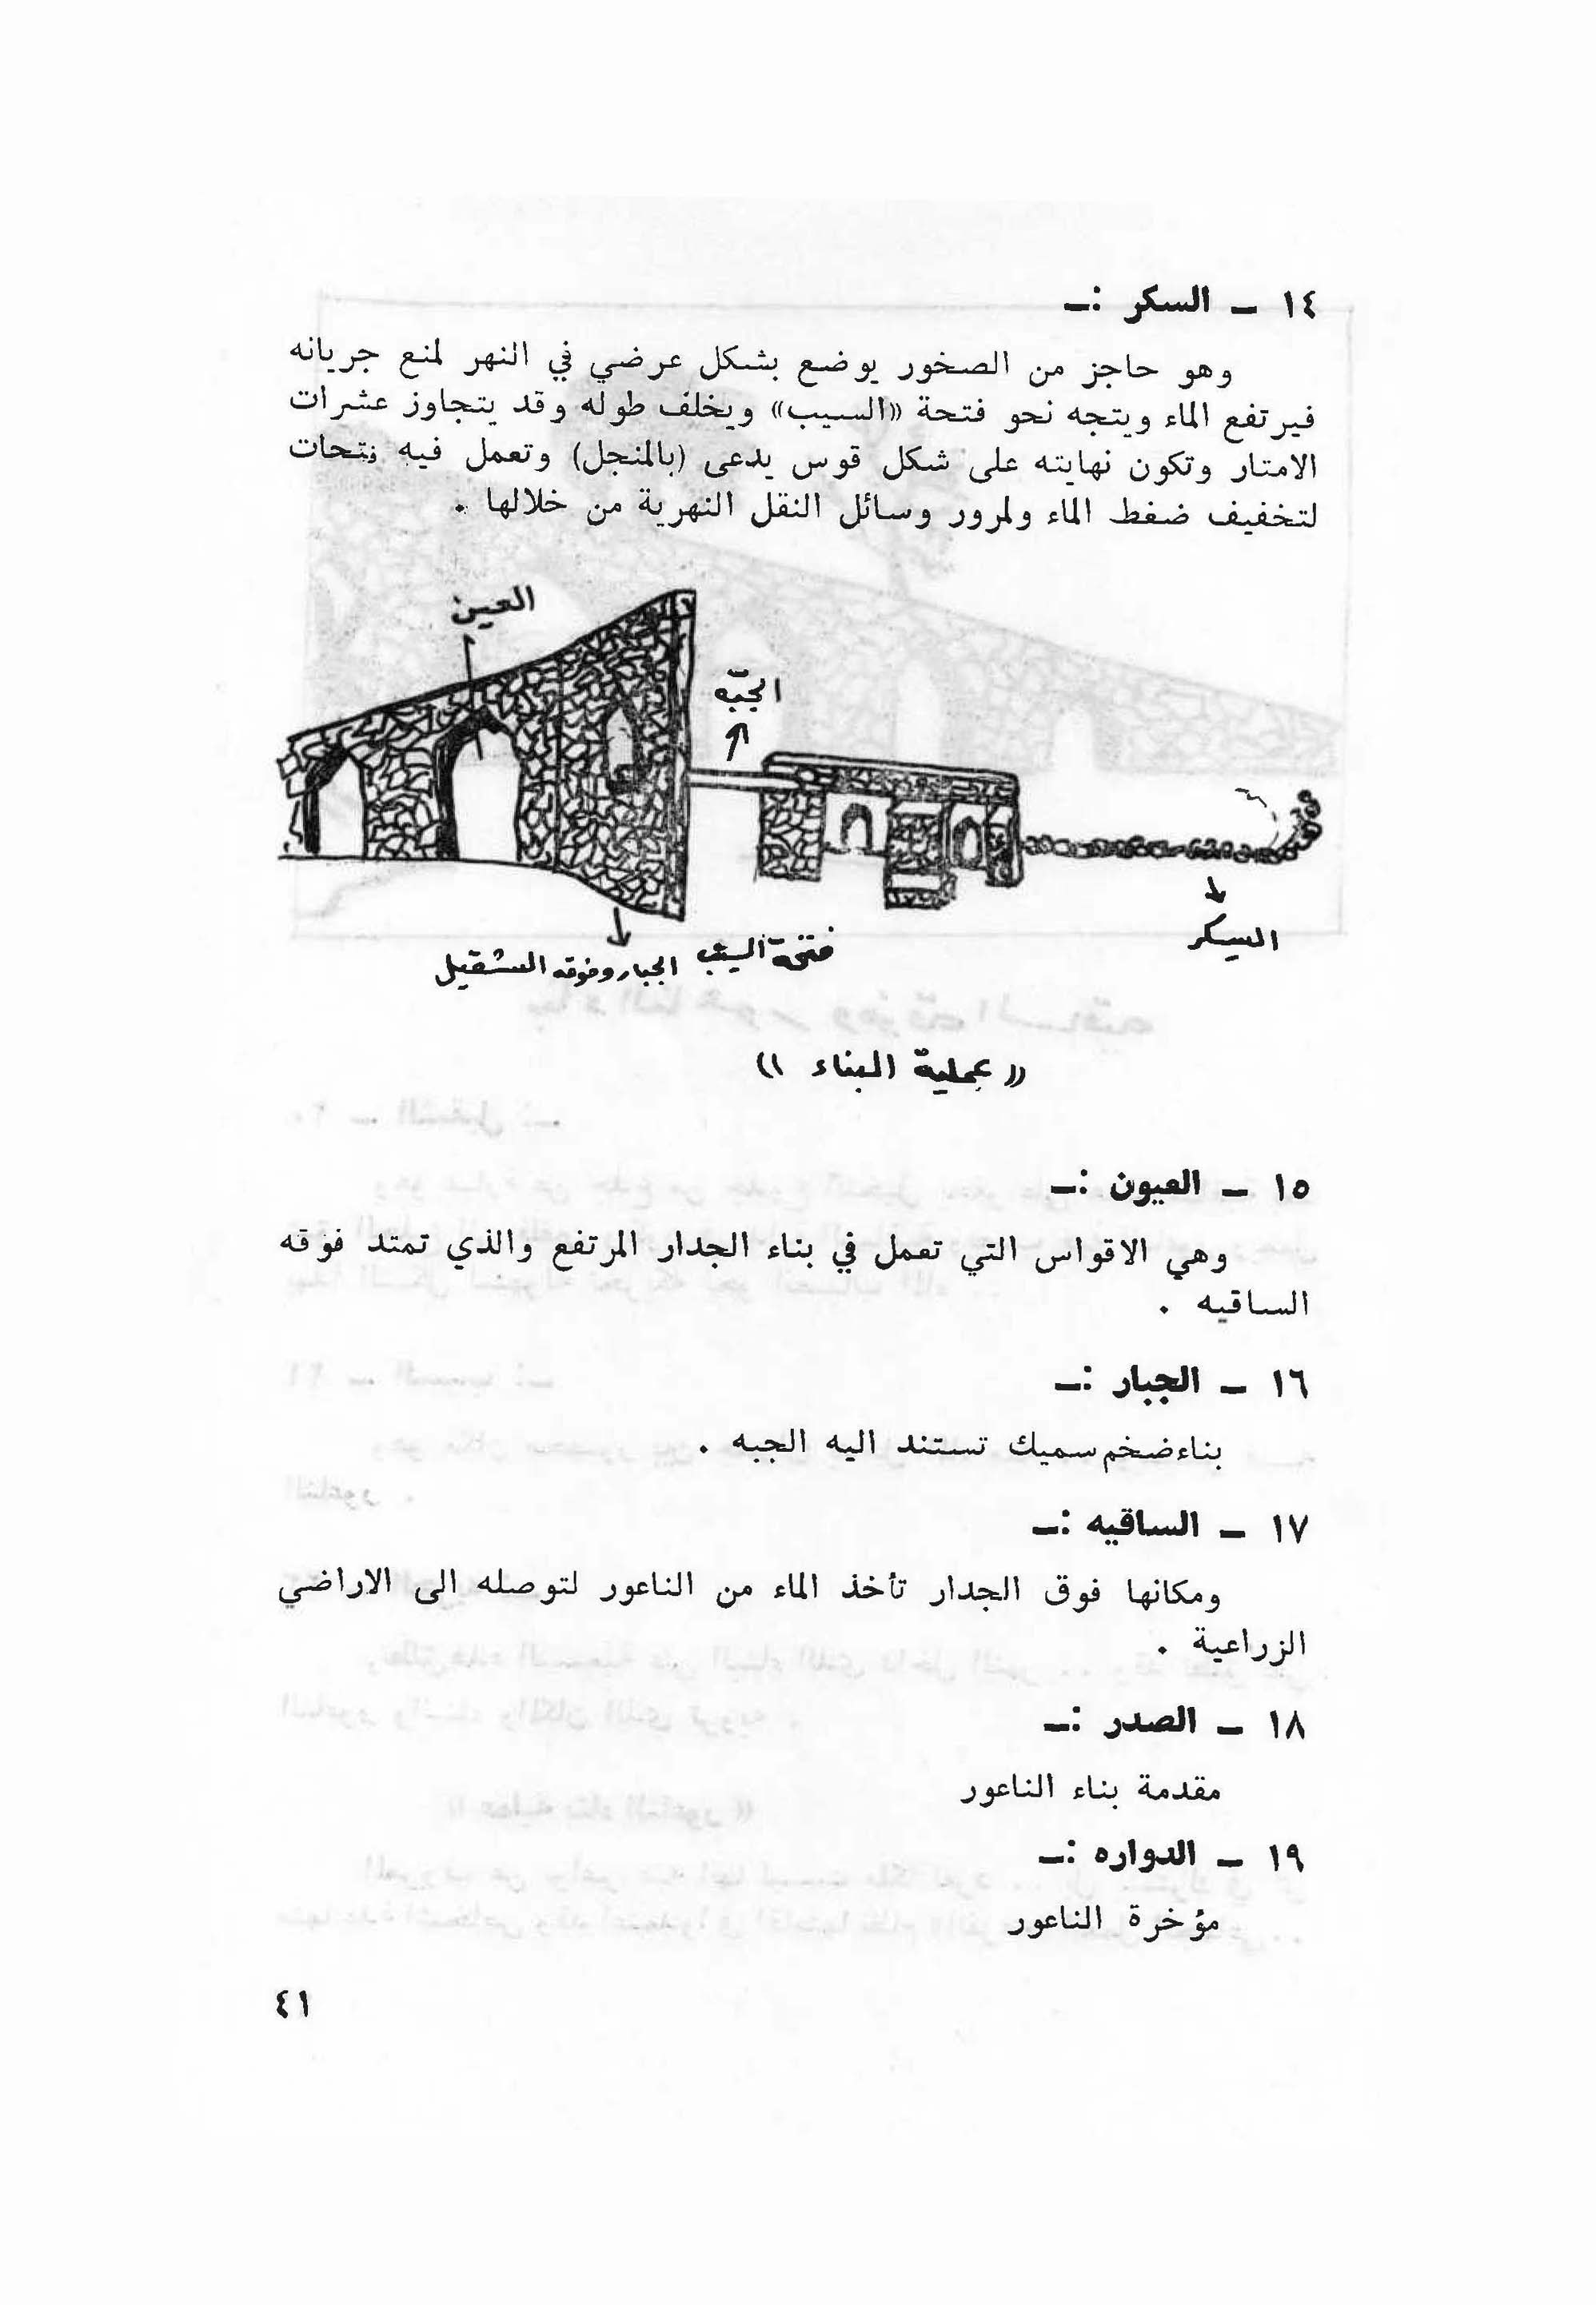 ١٤ – السكر :–
وهو حاجز من الصخور يوضع بشكل عرضي في النهر لمنع جريانه
فيرتفع الماء ويتجه نحو فتحة «السيب» ويخلف طوله وقد يتجاوز عشرات
الامتار وتكون نهايته على شكل قوس يدعى (بالمنجل) وتعمل فيه فتحات
لتخفيف ضغط الماء ولمرور وسائل النقل النهرية من خلالها .
العين
الجبّه
السكر
فتحة السيب
الجبار وفوقه الشقيل
« عملية البناء »
١٥ – العيون :–
وهي الاقواس التي تعمل في بناء الجدار المرتفع والذي تمتد فوقه
الساقيه .
١٦ – الجبار :–
بناء ضخم سميك تستند اليه الجبه .
١٧ – الساقيه :–
ومكانها فوق الجدار تأخذ الماء من الناعور لتوصله الى الاراضي
الزراعية .
١٨ – الصدر :–
مقدمة بناء الناعور
١٩ – الدواره :–
مؤخرة الناعور
٤١